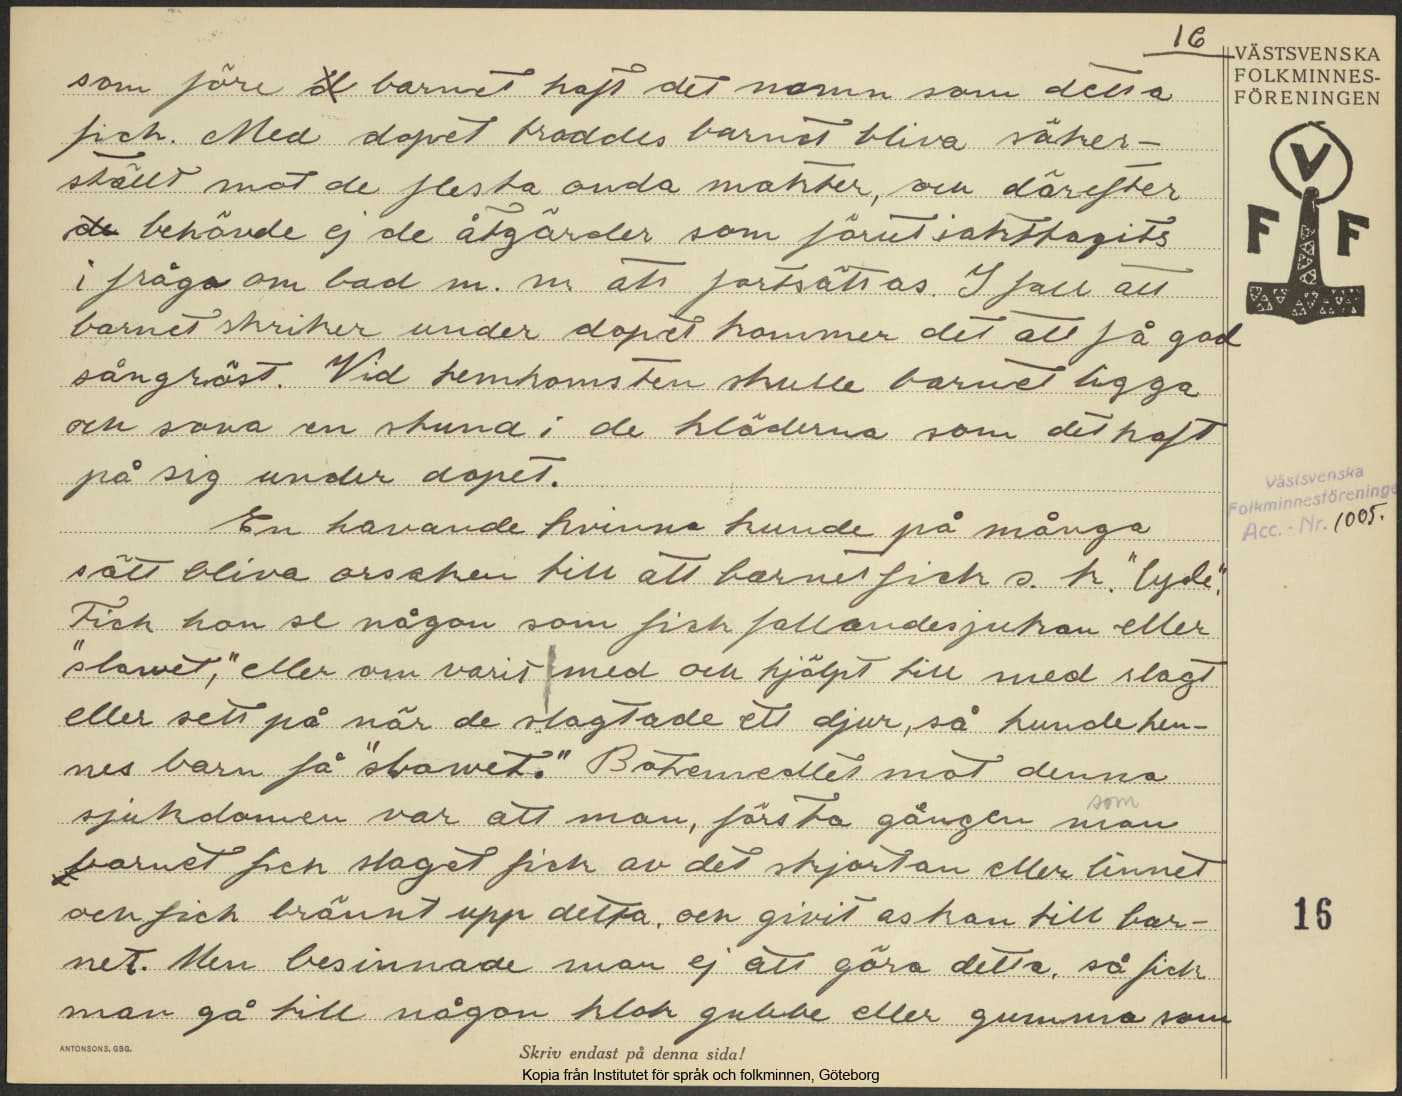 16
VÄSTSVENSKA
FOLKMINNES-
FÖRENINGEN
V
F F
som före barnet haft det namn som detta
fick. Med dopet troddes barnet bliva säker-
ställt mot de flesta onda makter, och därefter
behövde ej de åtgärder som förut iakttagits
i fråga om bad m. m att fortsättas. I fall att
barnet skriker under dopet kommer det att få god
sångröst. Vid hemkomsten skulle barnet ligga
och sova en stund i de kläderna som det haft
på sig under dopet.
En havande kvinna kunde på många
sätt bliva orsaken till att barnet fick s. k. "lyde".
Fick hon se någon som fick fallandesjukan eller
"slawet," eller om varit med och hjälpt till med slagt
eller sett på när de slagtade ett djur, så kunde hen-
nes barn få "slawet." Botemedlet mot denna
sjukdomen var att man, första gången man
som
barnet fick slaget fick av det skjortan eller linnet
och fick brännt upp detta, och givit askan till bar-
net. Men besinnade man ej att göra detta, så fick
man gå till någon klok gubbe eller gumma som
Västsvenska
Folkminnesföreninge
Acc. - Nr. 1005.
16
ANTONSONS, GBG.
Skriv endast på denna sida!
Kopia från Institutet för språk och folkminnen, Göteborg